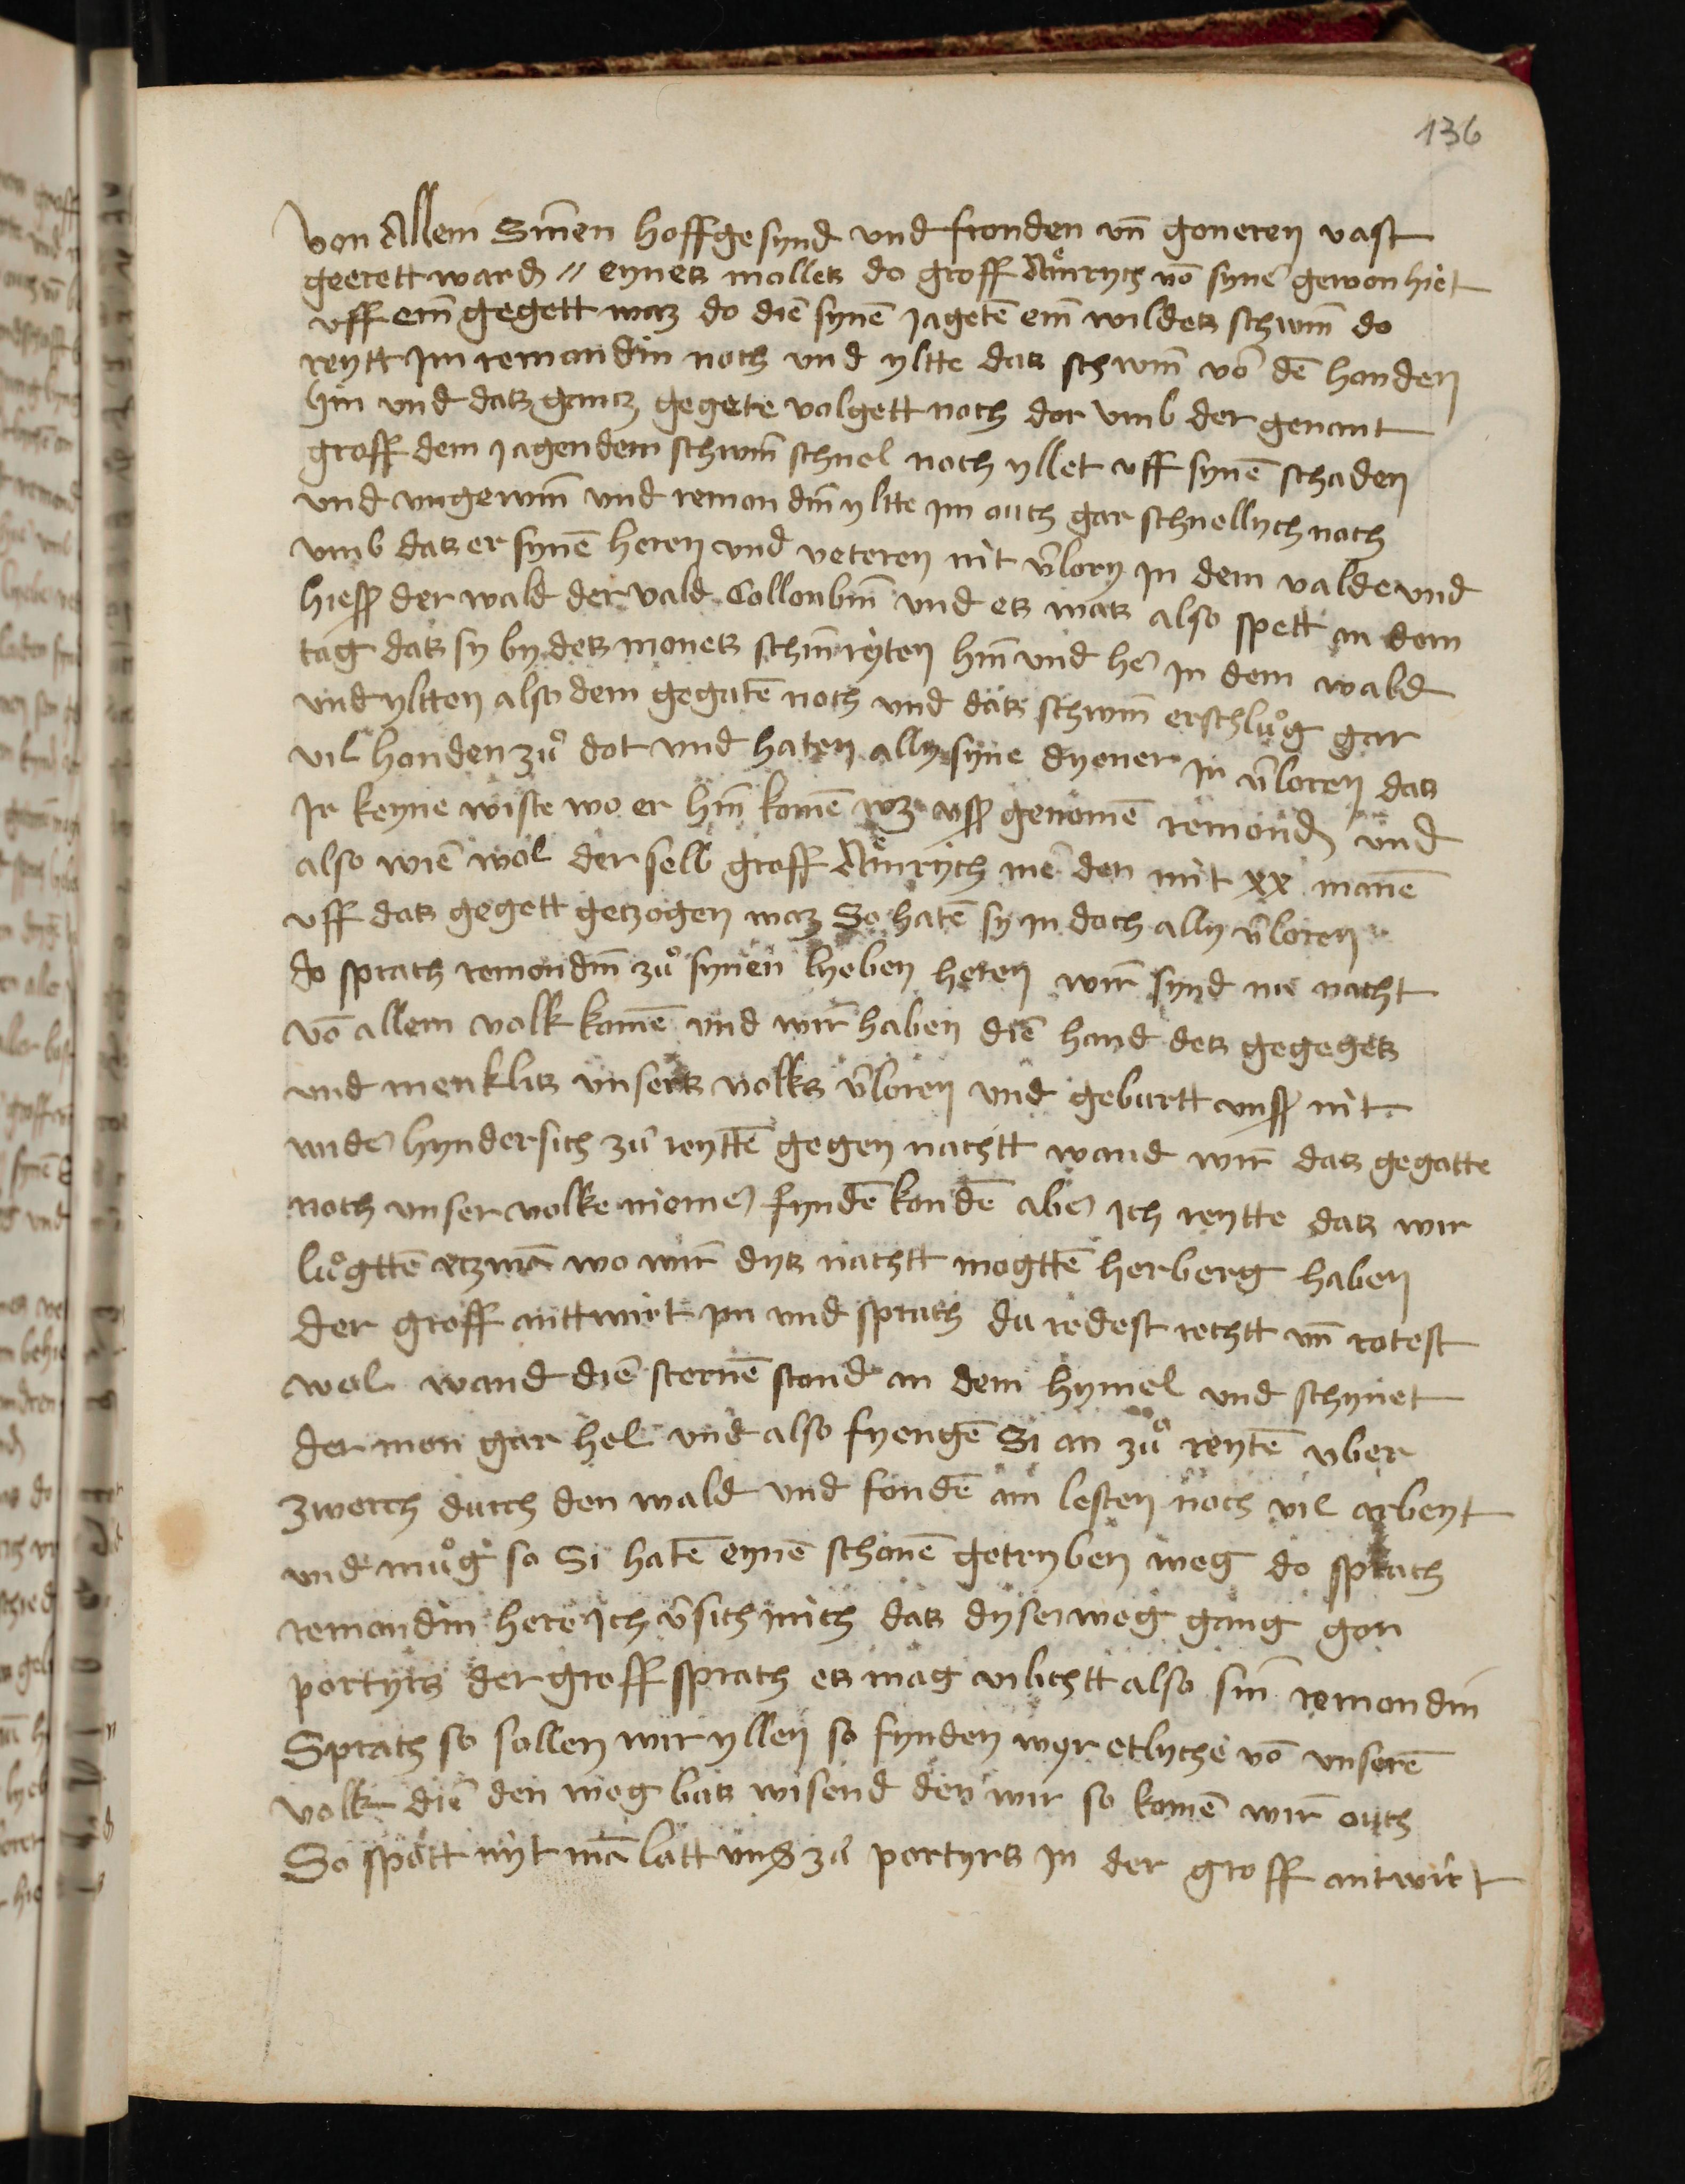 136
von Allem Sinen hoffgesynd vnd fronden vn̄ goneren vast
geerett ward // eynes molles do groff Aͤmrych vō syner gewonhiet
vff ein̄ gegett waz do die synē jagetē ein̄ wildes schwin̄ do
reytt Jm remondin noch vnd yltte das schwin̄ vō dē honden
hin vnd das gantz gegete volgett noch dor vmb der genant
groff dem jagendem schwin̄ schnel noch yllet vff synē schaden
vnd vngewin̄ vnd remondin̄ yltte jm ouch gar schnellych noch
vmb das er synē heren vnd veteren nit v̄lory jn dem valde vnd
hiess der wald der vald Collonbin̄ vnd es was also spett an dem
tag das sy by des mones schin̄ ryten hin̄ vnd her jn dem wald
vnd yltten also dem gegatē noch vnd das schwin̄ erschluͦg gar
vil honden zuͦ dot vnd haten ally syne dyener jn v̄loren das
Jr keyne wiste wo er hin̄ komē wz vss genomē remond vnd
also wie wol der selb groff Aͤmrych me den mit xx manē
vff das gegett gezogen waz So hatē sy jn doch ally v̄loren
do sprach remondin̄ zuͦ synen lyeben heren wir synd nie nacht
vō allem volk komē vnd wir haben die hond des gegeges
vnd menklis vnsers volks v̄loren vnd geburtt vnss nit
ander hyndersich zu reyttē gegen nachtt wand wir das gegatte
noch vnser volke niemer fyndē kondē aber jch reytte das wir
luͦgttē etzwa wo wir dys nachtt mogttē herberg haben
der groff anttwirt jm vnd sprach du redest rechtt vn̄ rotest
wol wand die sternē stond an dem hymel vnd schynet
der mon gar hel vnd also fyengē Si an zuͦ reytē vber
zwerch durch den wald vnd fondē am lesten noch vil arbeyt
vnd muͦg so Si hatē eynē schonē getryben weg do sprach
remondin here jch v̄sich mich das dyser weg gang gon
portyrs der groff sprach es mag vilichtt also sin̄ remondin
Sprach so sollen wir yllen so fynden wyr etlyche vō vnserē
volk die den weg bas wisend den wir so komē wir ouch
So spott nyt ma latt vns zu portyrs jn der groff antwirt